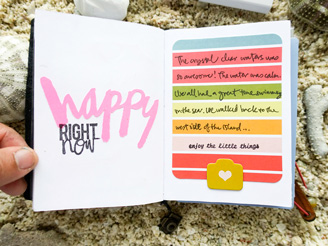 happy
RIGHT
now
The crystal clear waters was
so awesome! the water was calm.
We all had a great time swimming
in the sea. We walked back to the
west side of the island....
enjoy the little things